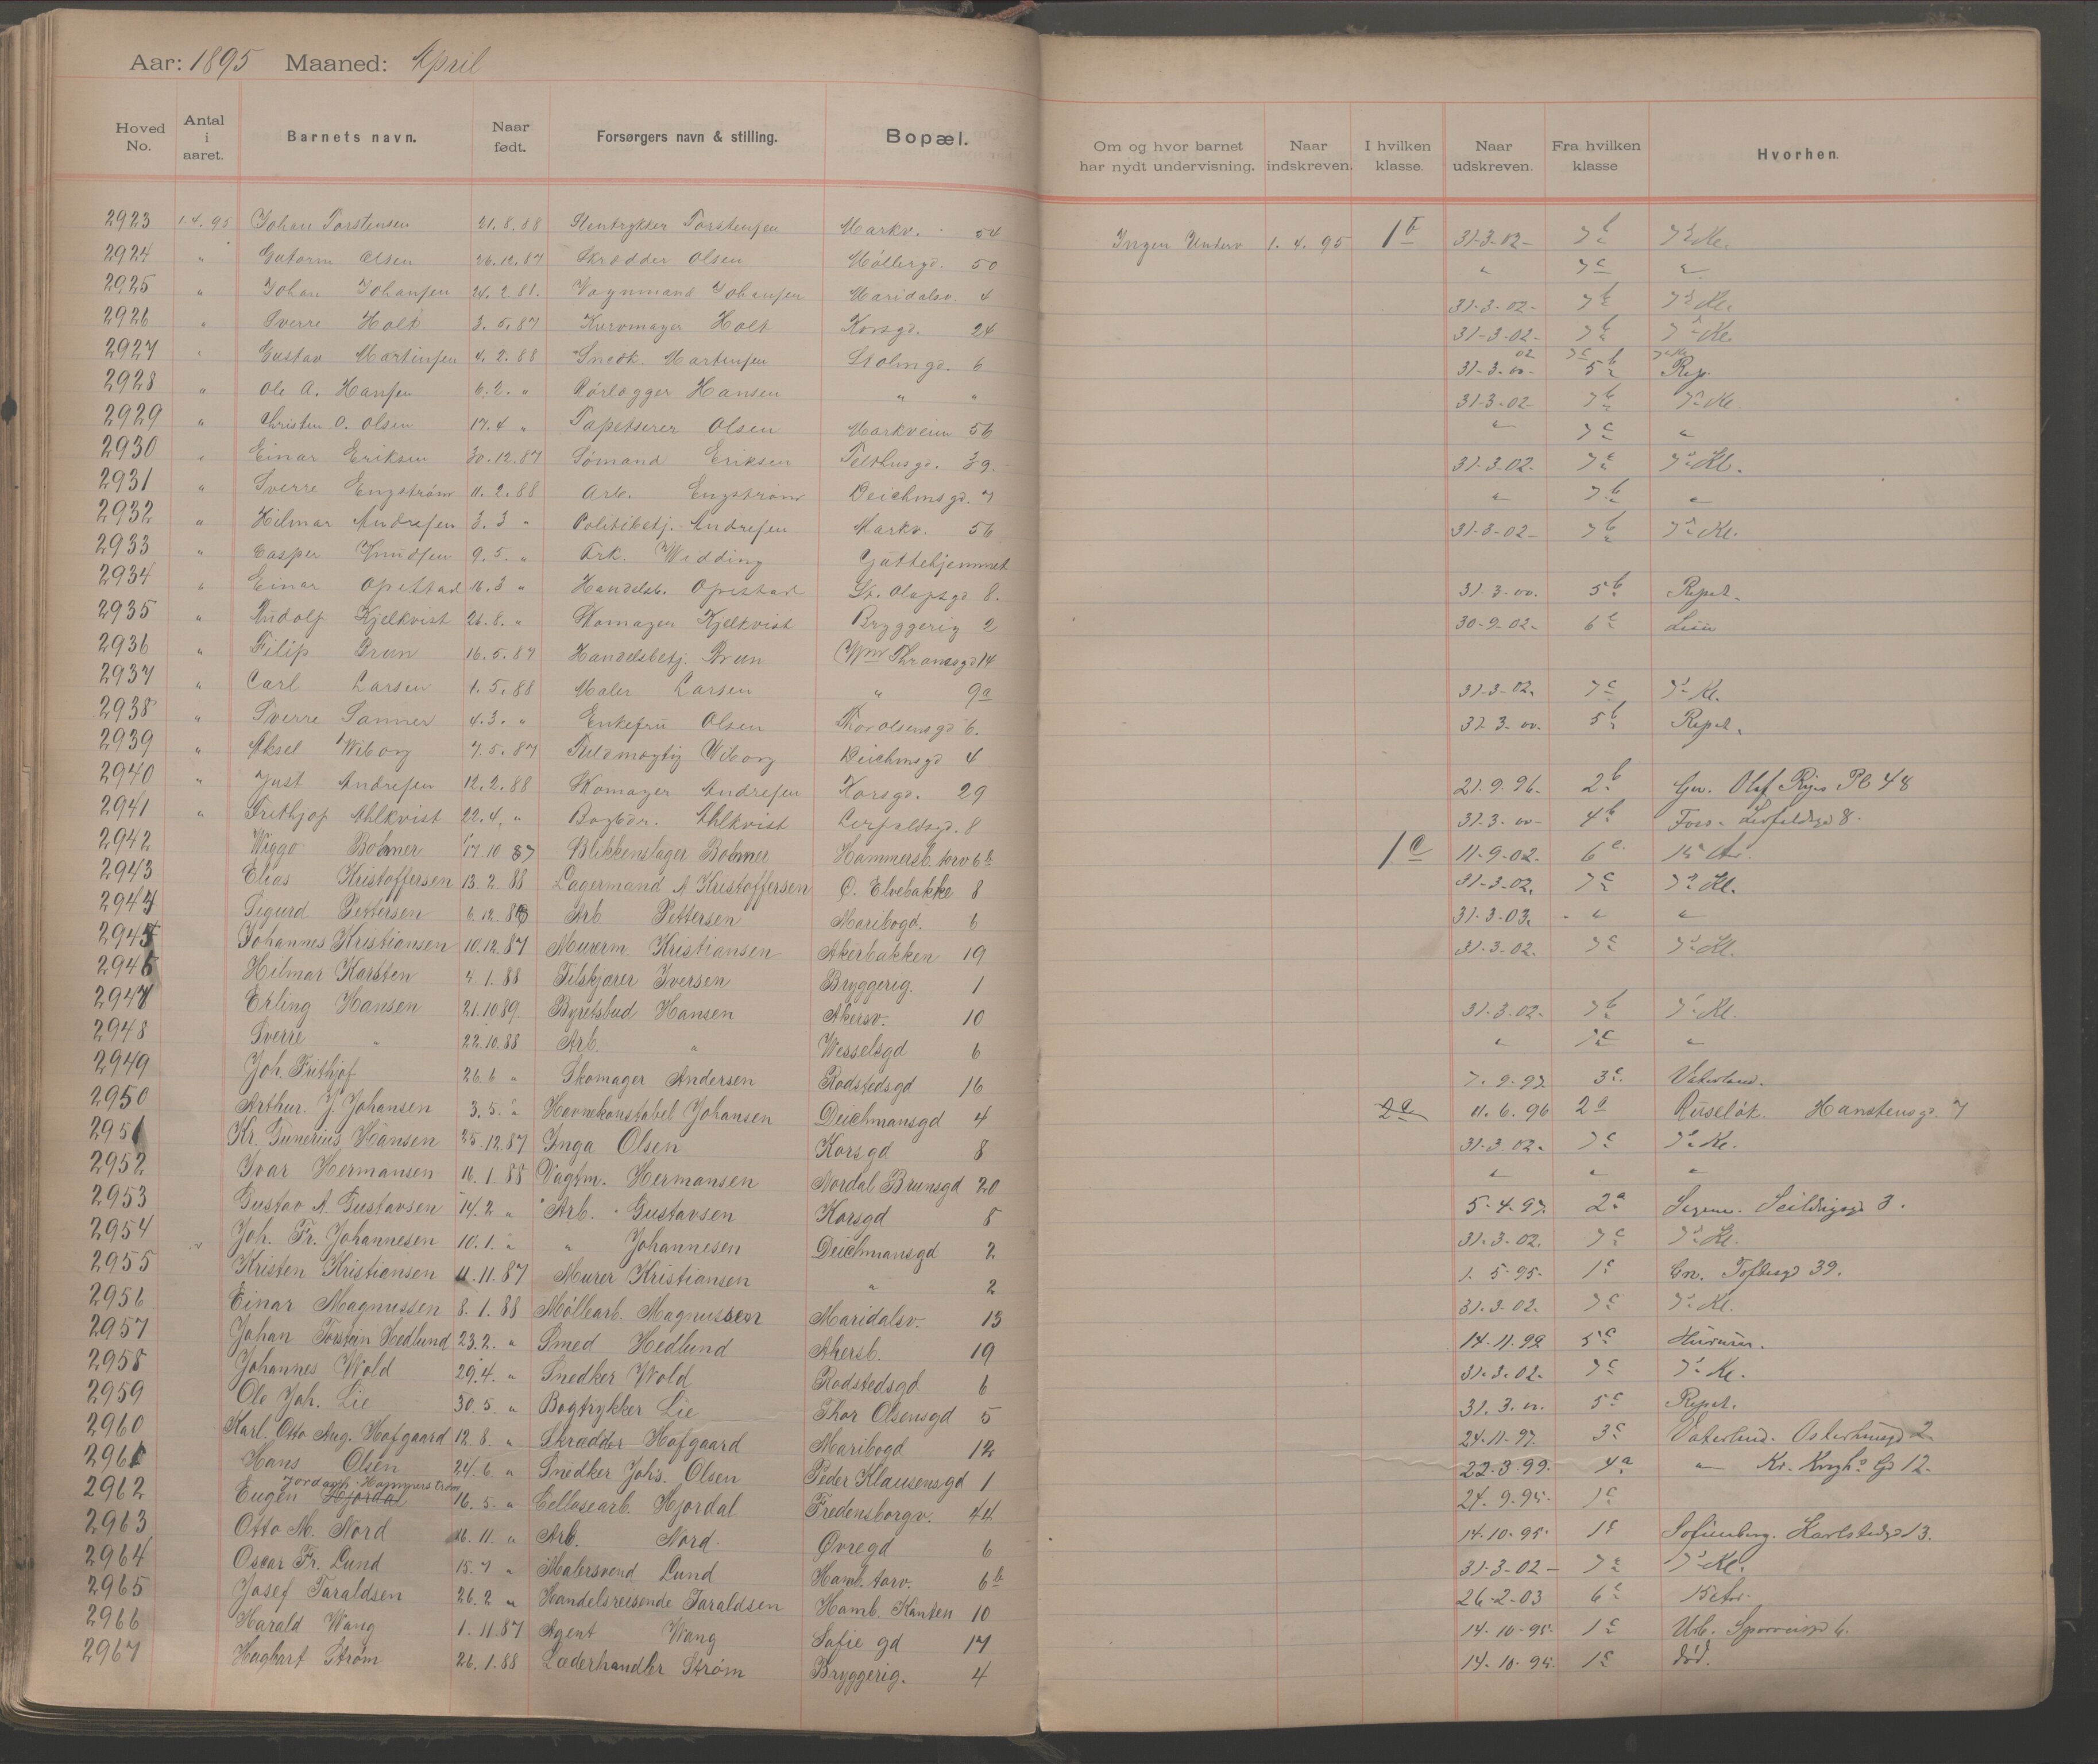 Aar: 1895 Maaned: April
Hoved No. Antal i aaret. Barnets navn. Naar født. Forsørgers navn & stilling. Bopæl. Om og hvor barnet har nydt undervisning. Naar indskreven. I hvilken klasse. Naar udskreven. Fra hvilken klasse Hvorhen.
2923 1.4.95 Johan Torstensen 21.8.88 Stentrykker Torstensen Markv. 54 Ingen Underv 1.4.95 1b 31-3-02- 7b 7de Kl.
2924 " Gutorm Olsen 26.12.87 Skrædder Olsen Møllergd. 50 " 7c "
2925 " Johan Johansen 24.2.88. Vognmand Johansen Maridalsv. 4 31-3-02- 7b 7de Kl.
2926 " Sverre Holt 3.5.87 Kurvmager Holt Korsgd. 24 31-3-02- 7b 7de Kl.
2927 " Gustav Martinsen 4.2.88 Snedk. Martinsen Stolmgd. 6 31-3-00- 5b Rep.
2928 " Ole A. Hansen 6.2. " Rørlægger Hansen " " 31-3-02- 7b 7de Kl.
2929 " Christen O. Olsen 17.4 " Tapetserer Olsen Markveien 56 " 7c "
2930 " Einar Eriksen 30.12.87 Sømand Eriksen Telthusgd. 39. 31-3-02- 7c 7de Kl.
2931 " Sverre Engstrøm 11.2.88 Arb. Engstrøm Deichmsgd. 7 " 7b "
2932 " Hilmar Andresen 3.3 " Politibetj. Andresen Markv. 56 31-3-02- 7b 7de Kl.
2933 " Casper Knudsen 9.5. " Frk. Wedding Guttehjemmet
2934 " Einar Opestad 16.3 " Handelsb. Opestad St. Olafsgd 8. 31.3.00. 5b Repet.
2935 " Rudolf Kjelkvist 26.8. " Skomager Kjelkvist Bryggerig 2 30-9-02- 6c
2936 " Filip Brun 16.5.87 Handelsbetj. Brun Wm Thranesgd 14
2937 " Carl Larsen 1.5.88 Maler Larsen " 9a 31-3-02. 7c 7de Kl.
2938 " Sverre Sanner 4.3. " Enkefru Olsen Thor Olsensgd 6. 31.3.00. 5b Repet.
2939 " Aksel Wiborg 7.5.87 Fuldmægtig Wiborg Deichmsgd 4
2940 " Just Andresen 12.2.88 Skomager Andresen Korsgd. 29 21.9.96- 2b Gr. Olaf Ryes Pl. 48
2941 " Frithjof Ahlkvist 22.4. " Bogbdr. Ahlkvist Lerfaldsgd. 8 31.3.00- 4b Foss- Lerfaldsgd 8.
2942 Wiggo Bohmer 17.10 87 Blikkenslager Bohmer Hammersb. torv 6b 1c 11-9-02. 6c.
2943 Elias Kristoffersen 13.2.88 Lagermand A Kristoffersen Ø. Elvebakke 8 31-3-02. 7c 7de Kl.
2944 Sigurd Pettersen 6.12.88 Arb Pettersen Maribogd. 6 31-3-03. " "
2945 Johannes Kristiansen 10.12.87 Murerm. Kristiansen Akerbakken 19 31-3-02. 7c 7de Kl.
2946 Hilmar Karsten 4.1.88 Filskjærer Iversen Bryggerig. 1
2947 Erling Hansen 21.10.89. Byretsbud Hansen Akersv. 10 31.3.02. 7b 7de Kl.
2948 Sverre " 22.10.88 Arb. " Wesselsgd 6 " 7c "
2949 Joh. Frithjof 26.6 " Skomager Andersen Rodstedsgd 16 7.9.97. 3c. Vaterland.
2950 Arthur. J. Johansen 3.5. " Havnekonstabel Johansen Deichmansgd 4 2a 11.6.96 2a Ruseløk. Hanstensgd. 7
2951 Kr. Tunerius Hansen 25.12.87 Inga Olsen Korsgd 8 31.3.02. 7c 7de Kl.
2952 Ivar Hermansen 16.1.88 Vagtm. Hermansen Nordal Brunsgd 20 " " "
2953 Gustav A. Gustavsen 14.2 " Arb. Gustavsen Korsgd 8 5-4-97. 2a 3.
2954 Joh. Fr. Johannesen 10.1. " " Johannesen Deichmansgd 2 31.3.02. 7c 7de Kl.
2955 Kristen Kristiansen 11.11.87 Murer Kristiansen " 2 1.5-95- 1c Gr. Toftesgd 39.
2956 Einar Magnussen 8.1.88 Møllearb. Magnussen Maridalsv. 13 31.3.02. 7c 7de Kl.
2957 Johan Torstein Hedlund 23.2. " Smed Hedlund Akersb. 19 14-11.99 5c
2958 Johannes Wold 29.4. " Snedker Wold Rodstedsgd 6 31.3.02. 7c 7de Kl.
2959 Ole Joh. Lie 30.5. " Bogtrykker Lie Thor Olsensgd 5 31.3.00. 5c Repet.
2960 Karl. Otto Aug. Hofgaard 12.8. " Skrædder Hofgaard Maribogd 12 24-11-97. 3c Vaterland. Osterhausgd 2
2961 Hans Olsen 24.6. " Snedker Johs. Olsen Peder Klausensgd 1 22-3.99. 4a " Kr. Krogh's Gd 12.
Jordanh. Hammerstrøm
2962 Eugen Hjordal 16.5. " Cellosearb. Hjordal Fredensborgv. 44 24.9.95. 1c
2963 Otto M. Nord 16.11. " Arb. Nord. Øvregd 6 14.10.95. 1c Sofienberg. Karlstadgd 13.
2964 Oscar Fr. Lund 15.7 " Malersvend Lund Hamb. torv. 6b 31-3-02- 7c 7de Kl.
2965 Josef Taraldsen 26.2 " Handelsreisende Taraldsen Hamb. Kanten 10 26-2-03 6c
2966 Harald Wang 1.11.87 Agent Wang Sofie gd 17 14-10-95. 1c 6.
2967 Hagbart Strøm 26.1.88 Læderhandler Strøm Bryggerig. 4 14.10.95. 1c død.